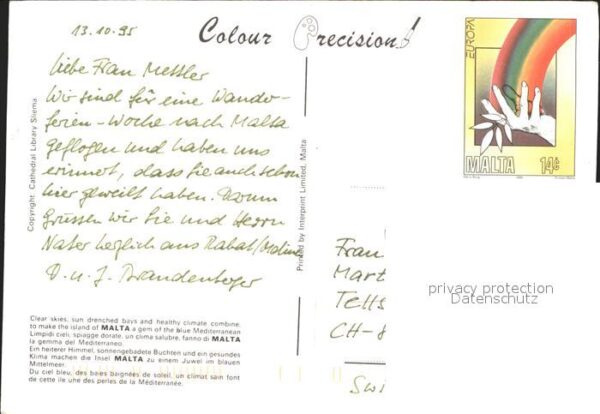 13.10.95
Colour Precision
Liebe Frau Messler
Wir sind für eine Wander-
ferien-Woche nach Malta
geflogen und haben uns
erinnert, dass Sie auch schon
hier geweilt haben. Darum
Grüssen wir Sie und Herrn
Nater herzlich aus Rabat/Mdina
D. u. J. Brandenberger
Copyright Cathedral Library Sliema
Printed by Interprint Limited, Malta
EUROPA
MALTA 14c
Frau
Mart
Tetts
CH-8
Swi
privacy protection
Datenschutz
Clear skies, sun drenched bays and healthy climate combine
to make the island of MALTA a gem of the blue Mediterranean
Limpidi cieli, spiagge dorate, un clima salubre, fanno di MALTA
la gemma del Mediterraneo.
Ein heiterer Himmel, sonnengebadete Buchten und ein gesundes
Klima machen die Insel MALTA zu einem Juwel im blauen
Mittelmeer.
Du ciel bleu, des baies baignées de soleil, un climat sain font
de cette île une des perles de la Méditerranée.